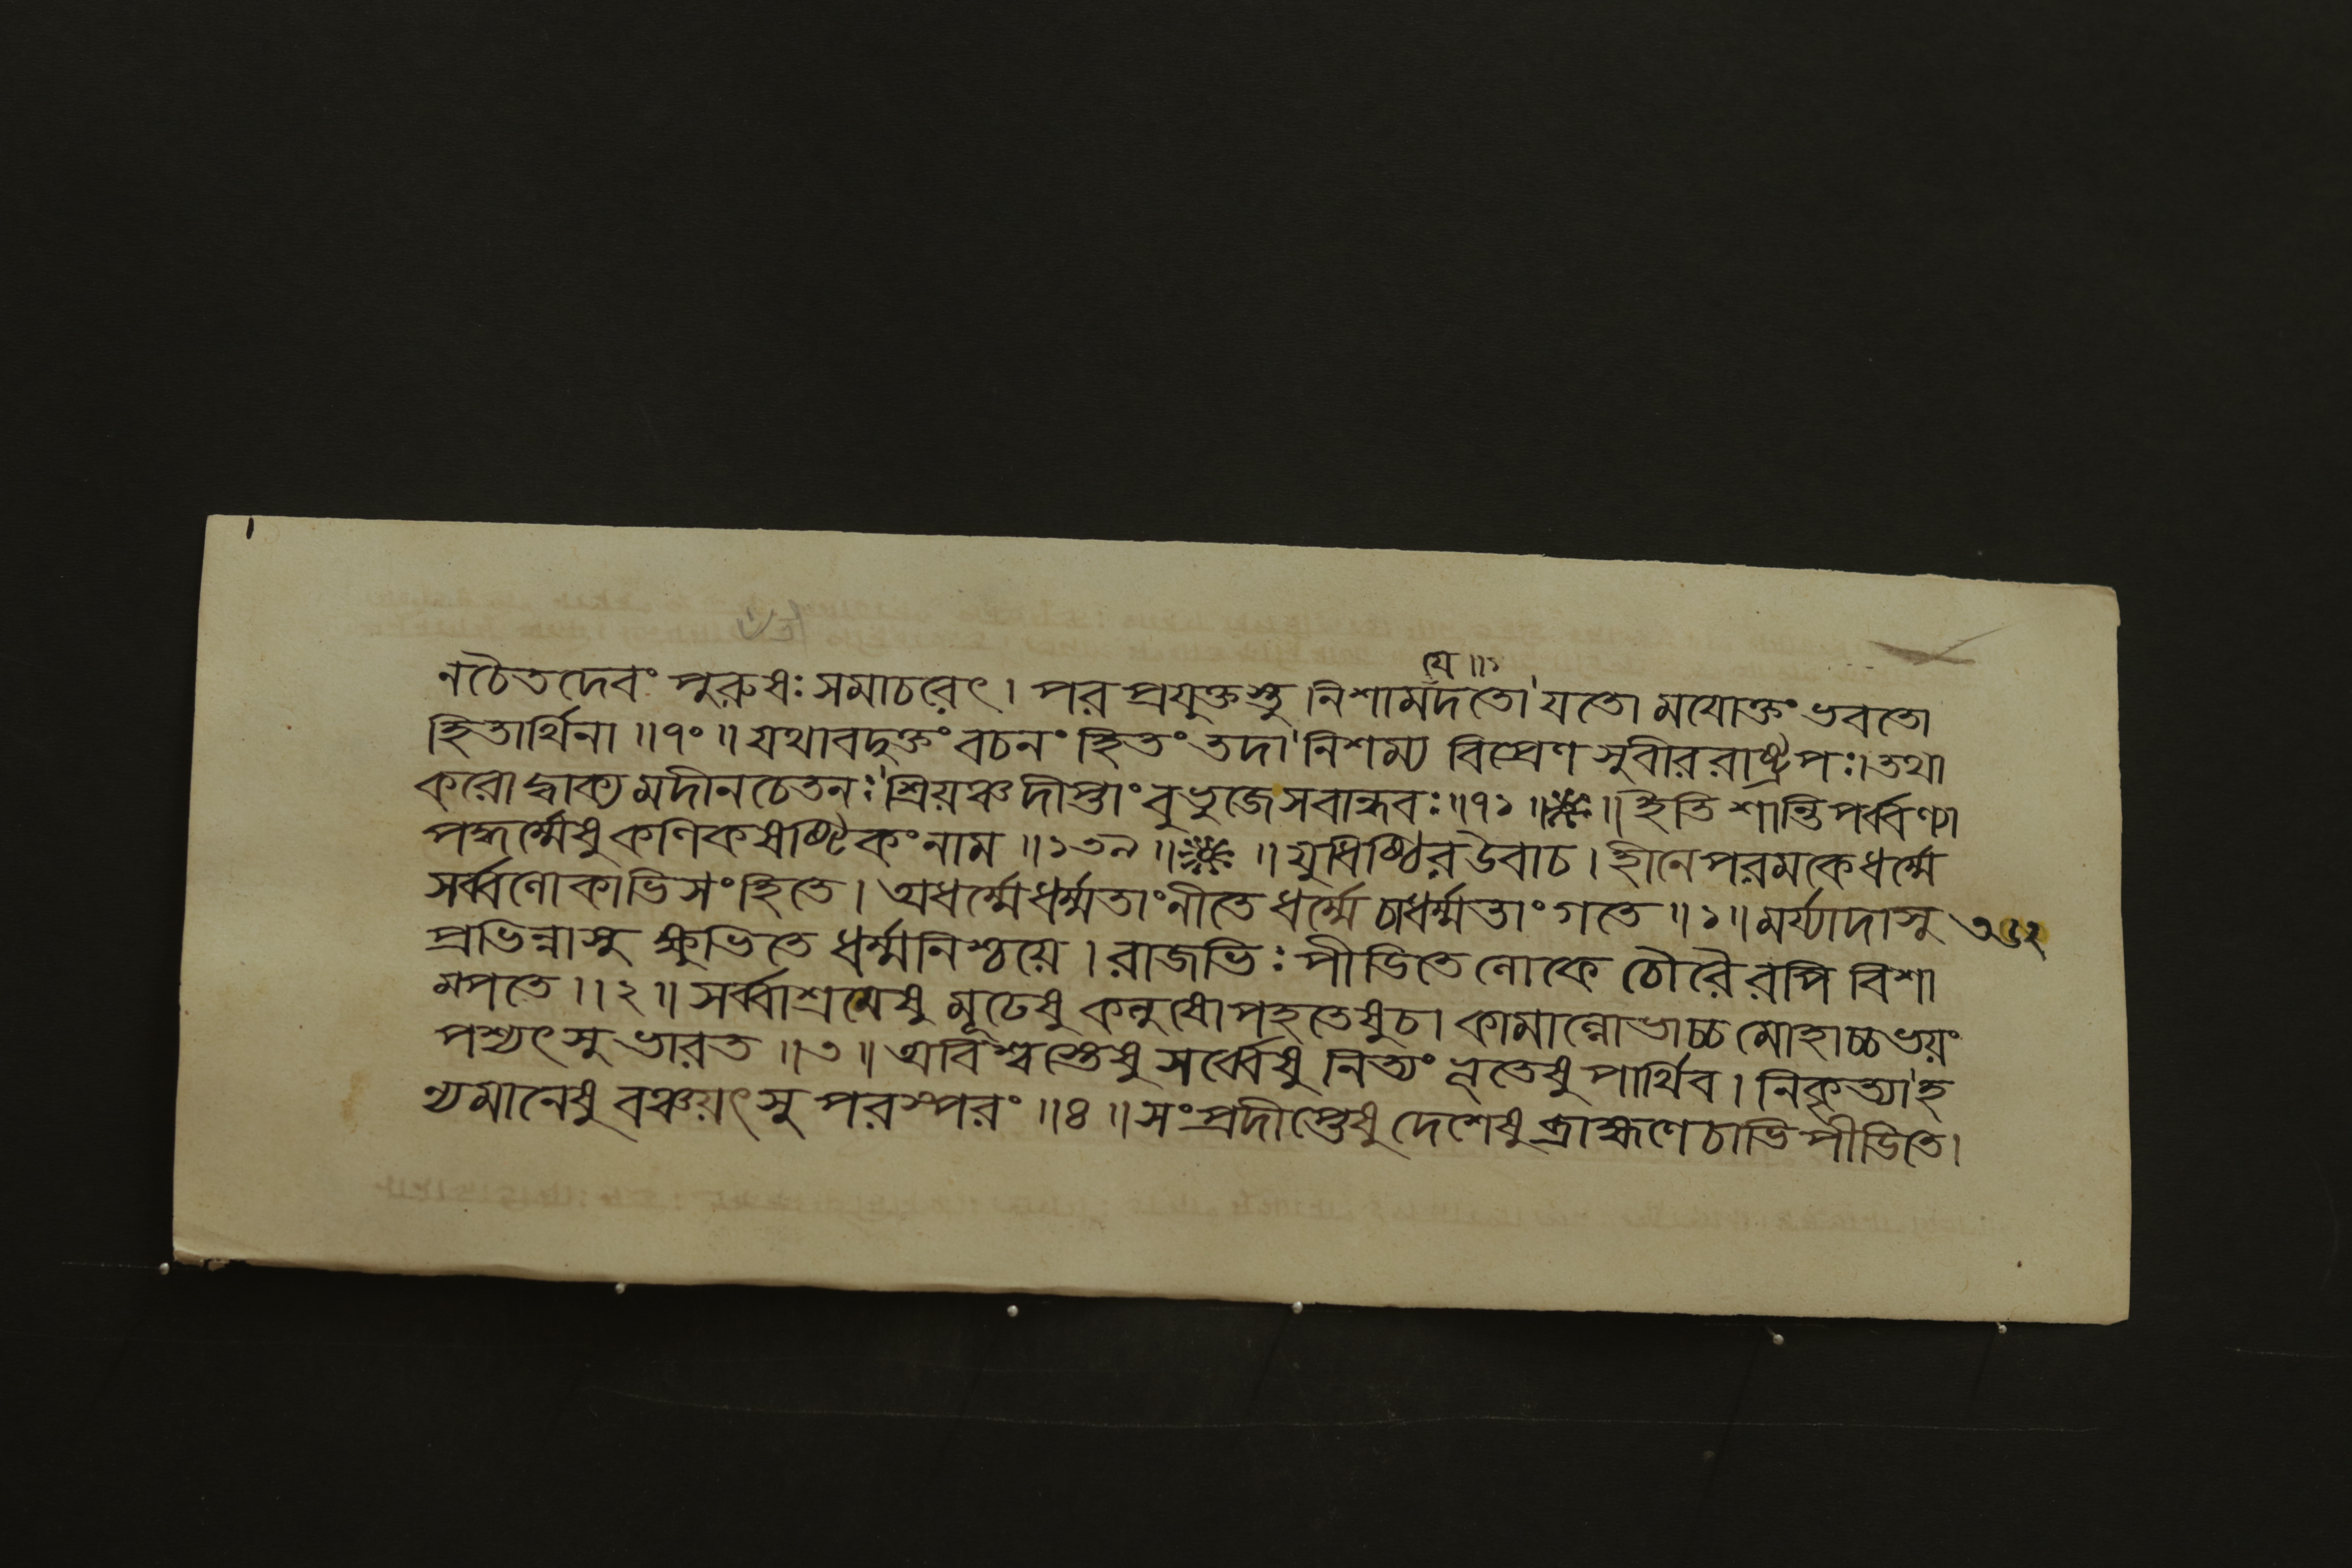 যে ॥১
নচৈতদেবং পুরুষঃ সমাচরেৎ। পর প্রযুক্তস্তু নিশামদতো যতো ময়োক্তং ভবতো
হিতার্থিনা ॥৭০॥ যথাবদুক্তং বচনং হিতং তদা নিশম্য বিপ্রেণ সুবীররাষ্ট্রপঃ। তথা
করোদ্বাক্যমদীনচেতনঃ শ্রিয়ঞ্চদীপ্তাং বুভুজেসবান্ধবঃ ॥৭১॥ ॥ ইতি শান্তিপর্ব্বণ্যা
পদ্ধর্ম্মেষু কণিকষষ্টিকং নাম ॥১৩৯॥ ॥ যুধিষ্ঠির উবাচ। হীনে পরমকে ধর্ম্মে
সর্ব্বলোকাভিসংহিতে। অধর্ম্মে ধর্ম্মতাং নীতে ধর্ম্মে চাধর্ম্মতাং গতে ॥১॥ মর্য্যাদাসু
প্রভিন্নাসু ক্ষুভিতে ধর্ম্মনিশ্চয়ে। রাজভিঃ পীডিতে লোকে চৌরৈরপি বিশা
ম্পতে ॥২॥ সর্ব্বাশ্রমেষু মূঢেষু কলুষোপহতেষুচ। কামাল্লোভাচ্চ মোহাচ্চ ভয়ং
পশ্যৎসু ভারত ॥৩॥ অবিশ্বস্তেষু সর্ব্বেষু নিত্যং নৃতেষু পার্থিব। নিকৃত্যা হ
ন্যমানেষু বঞ্চয়ৎসু পরস্পরং ॥৪॥ সংপ্রদীপ্তেষু দেশেষু ব্রাহ্মণে চাভিপীডিতে।